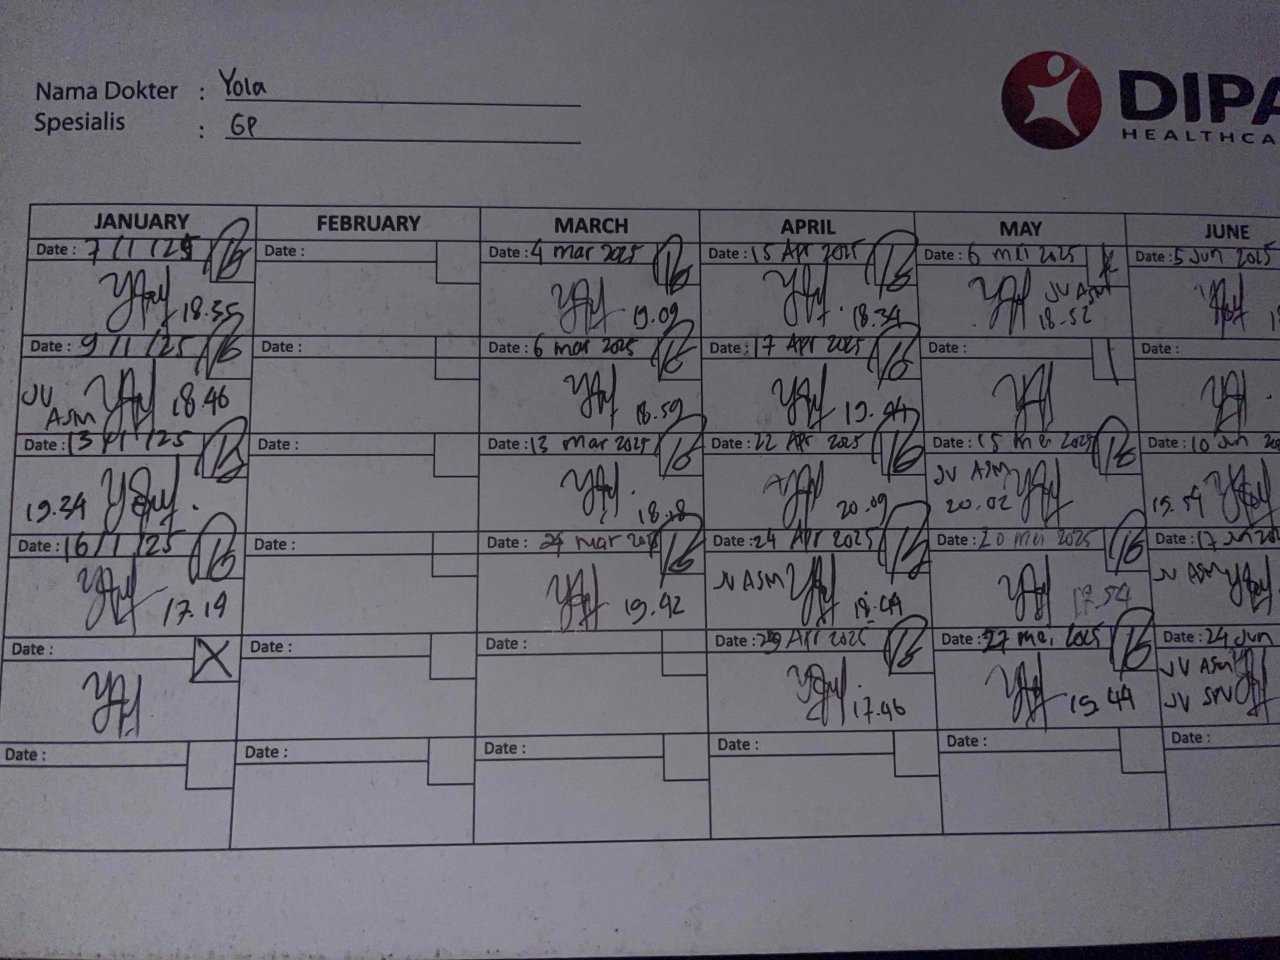 Nama Dokter : Yola
Spesialis : GP
DIPA
HEALTHCA
JANUARY FEBRUARY MARCH APRIL MAY JUNE
Date : 7/1/25 Date : Date : 4 mar 2025 Date : 15 Apr 2025 Date : 6 mei 2025 Date : 5 Jun 2025
18.35 19.09 18.34 JV ASM 18-52
Date : 9/1/25 Date : Date : 6 mar 2025 Date : 17 Apr 2025 Date : Date :
JV ASM 18.46 18.59 19.44
Date : 13/1/25 Date : Date : 13 mar 2025 Date : 22 Apr 2025 Date : 15 mei 2025 Date : 10 Jun
19.34 20.09 JV ASM 20.02 19.54
Date : 16/1/25 Date : Date : mar Date : 24 Apr 2025 Date : 20 mei 2025 Date : 17 Jun
17.19 19.42 JV ASM 17.54 JV ASM
Date : Date : Date : Date : 29 Apr 2025 Date : 27 mei 2025 Date : 24 Jun
17.46 19.44 JV ASM
JV
Date : Date : Date : Date : Date : Date :